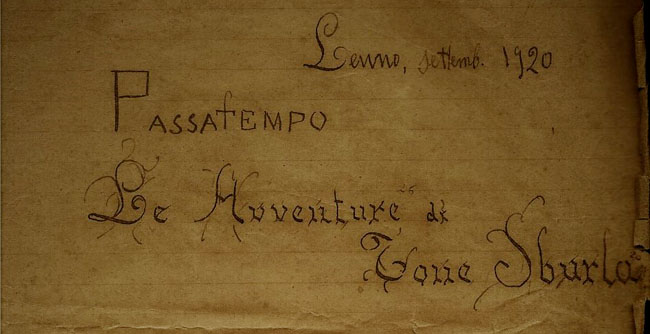 Lenno, settemb. 1920
PASSATEMPO
Le Avventure di
Tone Sburla